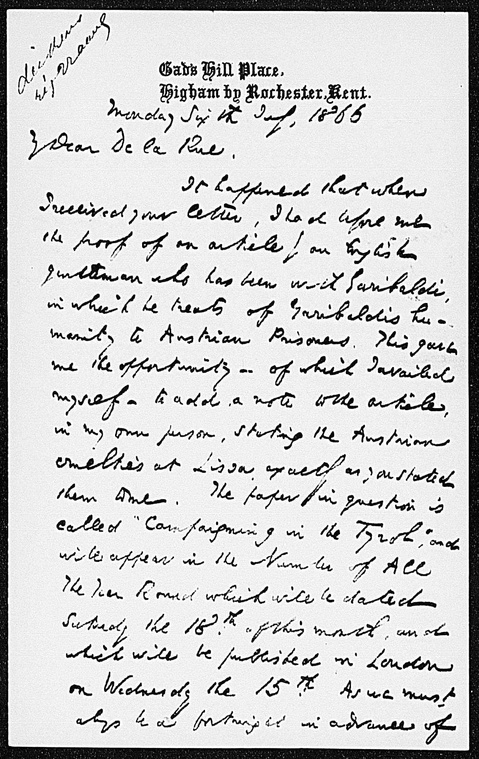 Gad's Hill Place,
Higham by Rochester, Kent.
Monday Sixth 1866
My Dear De la Rue,
It happened that when
I received your letter, I had before me
the proof of an article by an English
gentleman who has been with Garibaldi,
in which he treats of Garibaldis hu-
manity to Austrian Prisoners. This gave
me the opportunity – of which I availed
myself – to add a note to the article,
in my own person, stating the Austrian
cruelties at Lissa, exactly as you stated
them to me. The paper in question is
called "Campaigning in the Tyrol", and
will appear in the Number of All
The Year Round which will be dated
Saturday the 18th. of this month, and
which will be published in London
on Wednesday the 15th. As we must
always be a fortnight in advance of